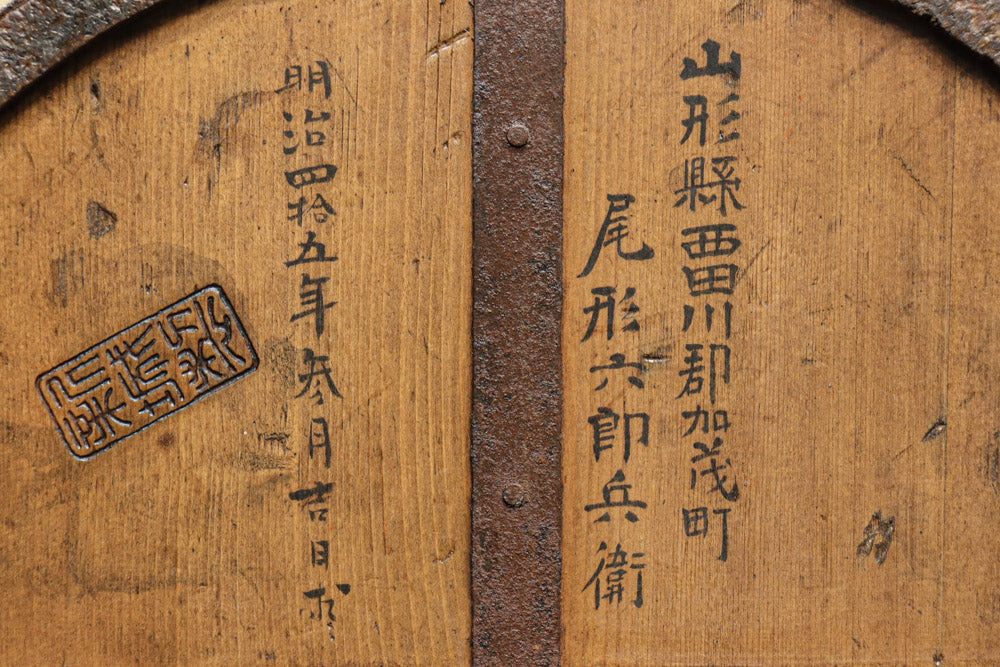 山形縣西田川郡加茂町
尾形六郎兵衛
明治四拾五年参月吉日求